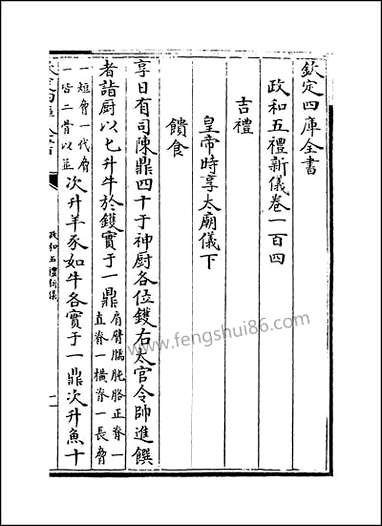 欽定四庫全書
政和五禮新儀卷一百四
吉禮
皇帝時享太廟儀下
饋食
享日有司陳鼎四十于神厨各位鑊右太官令帥進饌
者詣厨以匕升牛於鑊實于一鼎肩臂臑肫胳正脊一
直脊一橫脊一長脅
一短脅一代脅
一皆二骨以並次升羊豕如牛各實于一鼎次升魚十
政和五禮新儀
www.fengshui86.com